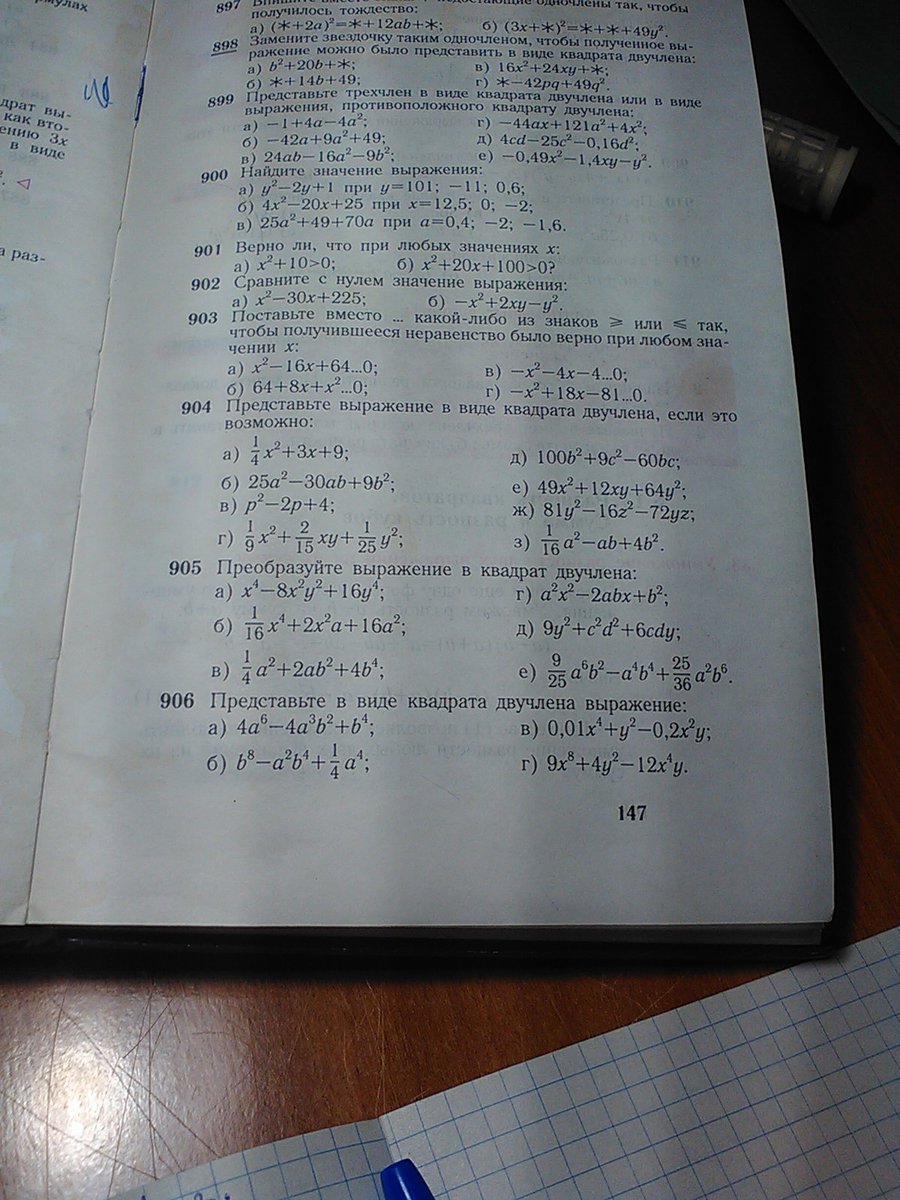 рмулах
драт вы-
как вто-
ению 3x
в виде
а раз-
897 Впишите вместо недостающие одночлены так, чтобы
получилось тождество:
а) (∗+2a)²=∗+12ab+∗; б) (3x+∗)²=∗+∗+49y².
898 Замените звездочку таким одночленом, чтобы полученное вы-
ражение можно было представить в виде квадрата двучлена:
а) b²+20b+∗; в) 16x²+24xy+∗;
б) ∗+14b+49; г) ∗−42pq+49q².
899 Представьте трехчлен в виде квадрата двучлена или в виде
выражения, противоположного квадрату двучлена:
а) −1+4a−4a²; г) −44ax+121a²+4x²;
б) −42a+9a²+49; д) 4cd−25c²−0,16d²;
в) 24ab−16a²−9b²; е) −0,49x²−1,4xy−y².
900 Найдите значение выражения:
а) y²−2y+1 при y=101; −11; 0,6;
б) 4x²−20x+25 при x=12,5; 0; −2;
в) 25a²+49+70a при a=0,4; −2; −1,6.
901 Верно ли, что при любых значениях x:
а) x²+10>0; б) x²+20x+100>0?
902 Сравните с нулем значение выражения:
а) x²−30x+225; б) −x²+2xy−y².
903 Поставьте вместо ... какой-либо из знаков ⩾ или ⩽ так,
чтобы получившееся неравенство было верно при любом зна-
чении x:
а) x²−16x+64...0; в) −x²−4x−4...0;
б) 64+8x+x²...0; г) −x²+18x−81...0.
904 Представьте выражение в виде квадрата двучлена, если это
возможно:
а) 1/4 x²+3x+9; д) 100b²+9c²−60bc;
б) 25a²−30ab+9b²; е) 49x²+12xy+64y²;
в) p²−2p+4; ж) 81y²−16z²−72yz;
г) 1/9 x²+2/15 xy+1/25 y²; з) 1/16 a²−ab+4b².
905 Преобразуйте выражение в квадрат двучлена:
а) x⁴−8x²y²+16y⁴; г) a²x²−2abx+b²;
б) 1/16 x⁴+2x²a+16a²; д) 9y²+c²d²+6cdy;
в) 1/4 a²+2ab²+4b⁴; е) 9/25 a⁶b²−a⁴b⁴+25/36 a²b⁶.
906 Представьте в виде квадрата двучлена выражение:
а) 4a⁶−4a³b²+b⁴; в) 0,01x⁴+y²−0,2x²y;
б) b⁸−a²b⁴+1/4 a⁴; г) 9x⁸+4y²−12x⁴y.
147